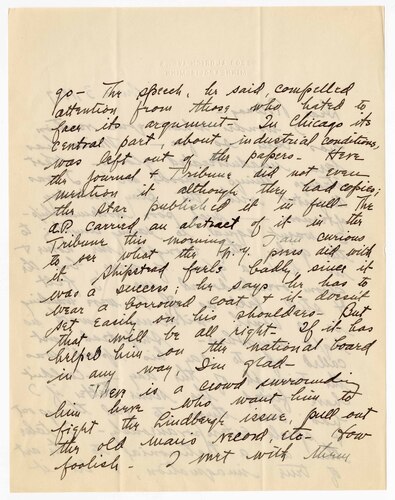 go - The speech, he said, compelled
attention from those who hated to
face its argument. In Chicago its
central part, about industrial conditions,
was left out of the papers - Here
the Journal & Tribune did not even
mention it although they had copies;
the Star published it in full - The
A.P. carried an abstract of it in the
Tribune this morning. I am curious
to see what the N.Y. press did with
it. Shipstead feels badly, since it
was a success; he says he has to
wear a borrowed coat & it doesn't
set easily on his shoulders - But
that will be all right. If it has
helped him on the national board
in any way I'm glad -
There is a crowd surrounding
him here who want him to
fight the Lindbergh issue, pull out
the old man's record, etc - How
foolish - I met with them